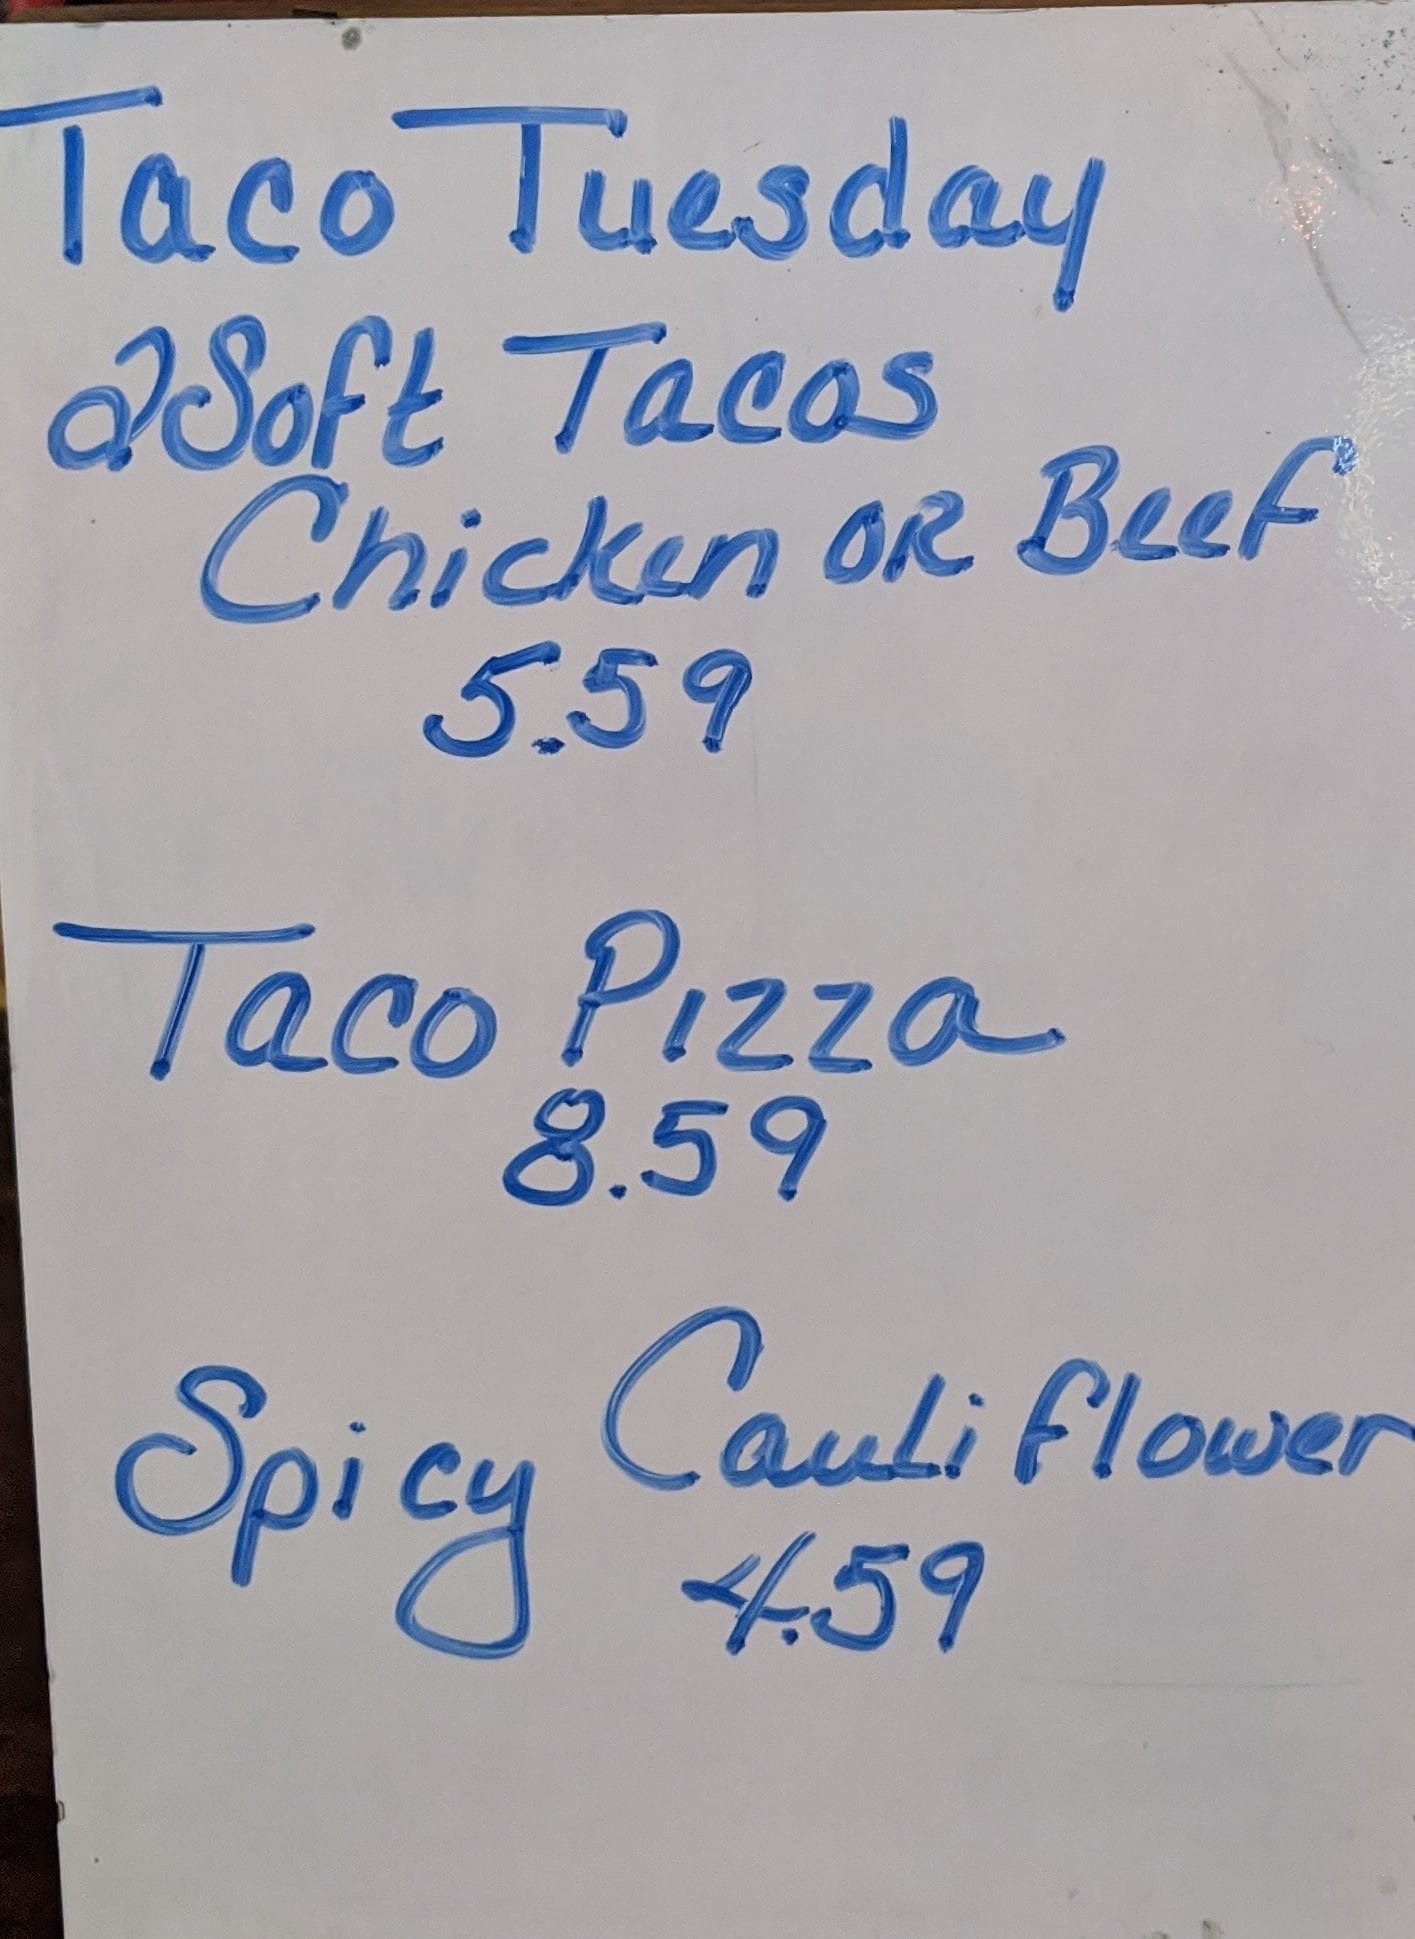 Taco Tuesday
2 Soft Tacos
Chicken OR Beef
5.59
Taco Pizza
8.59
Spicy Cauliflower
4.59